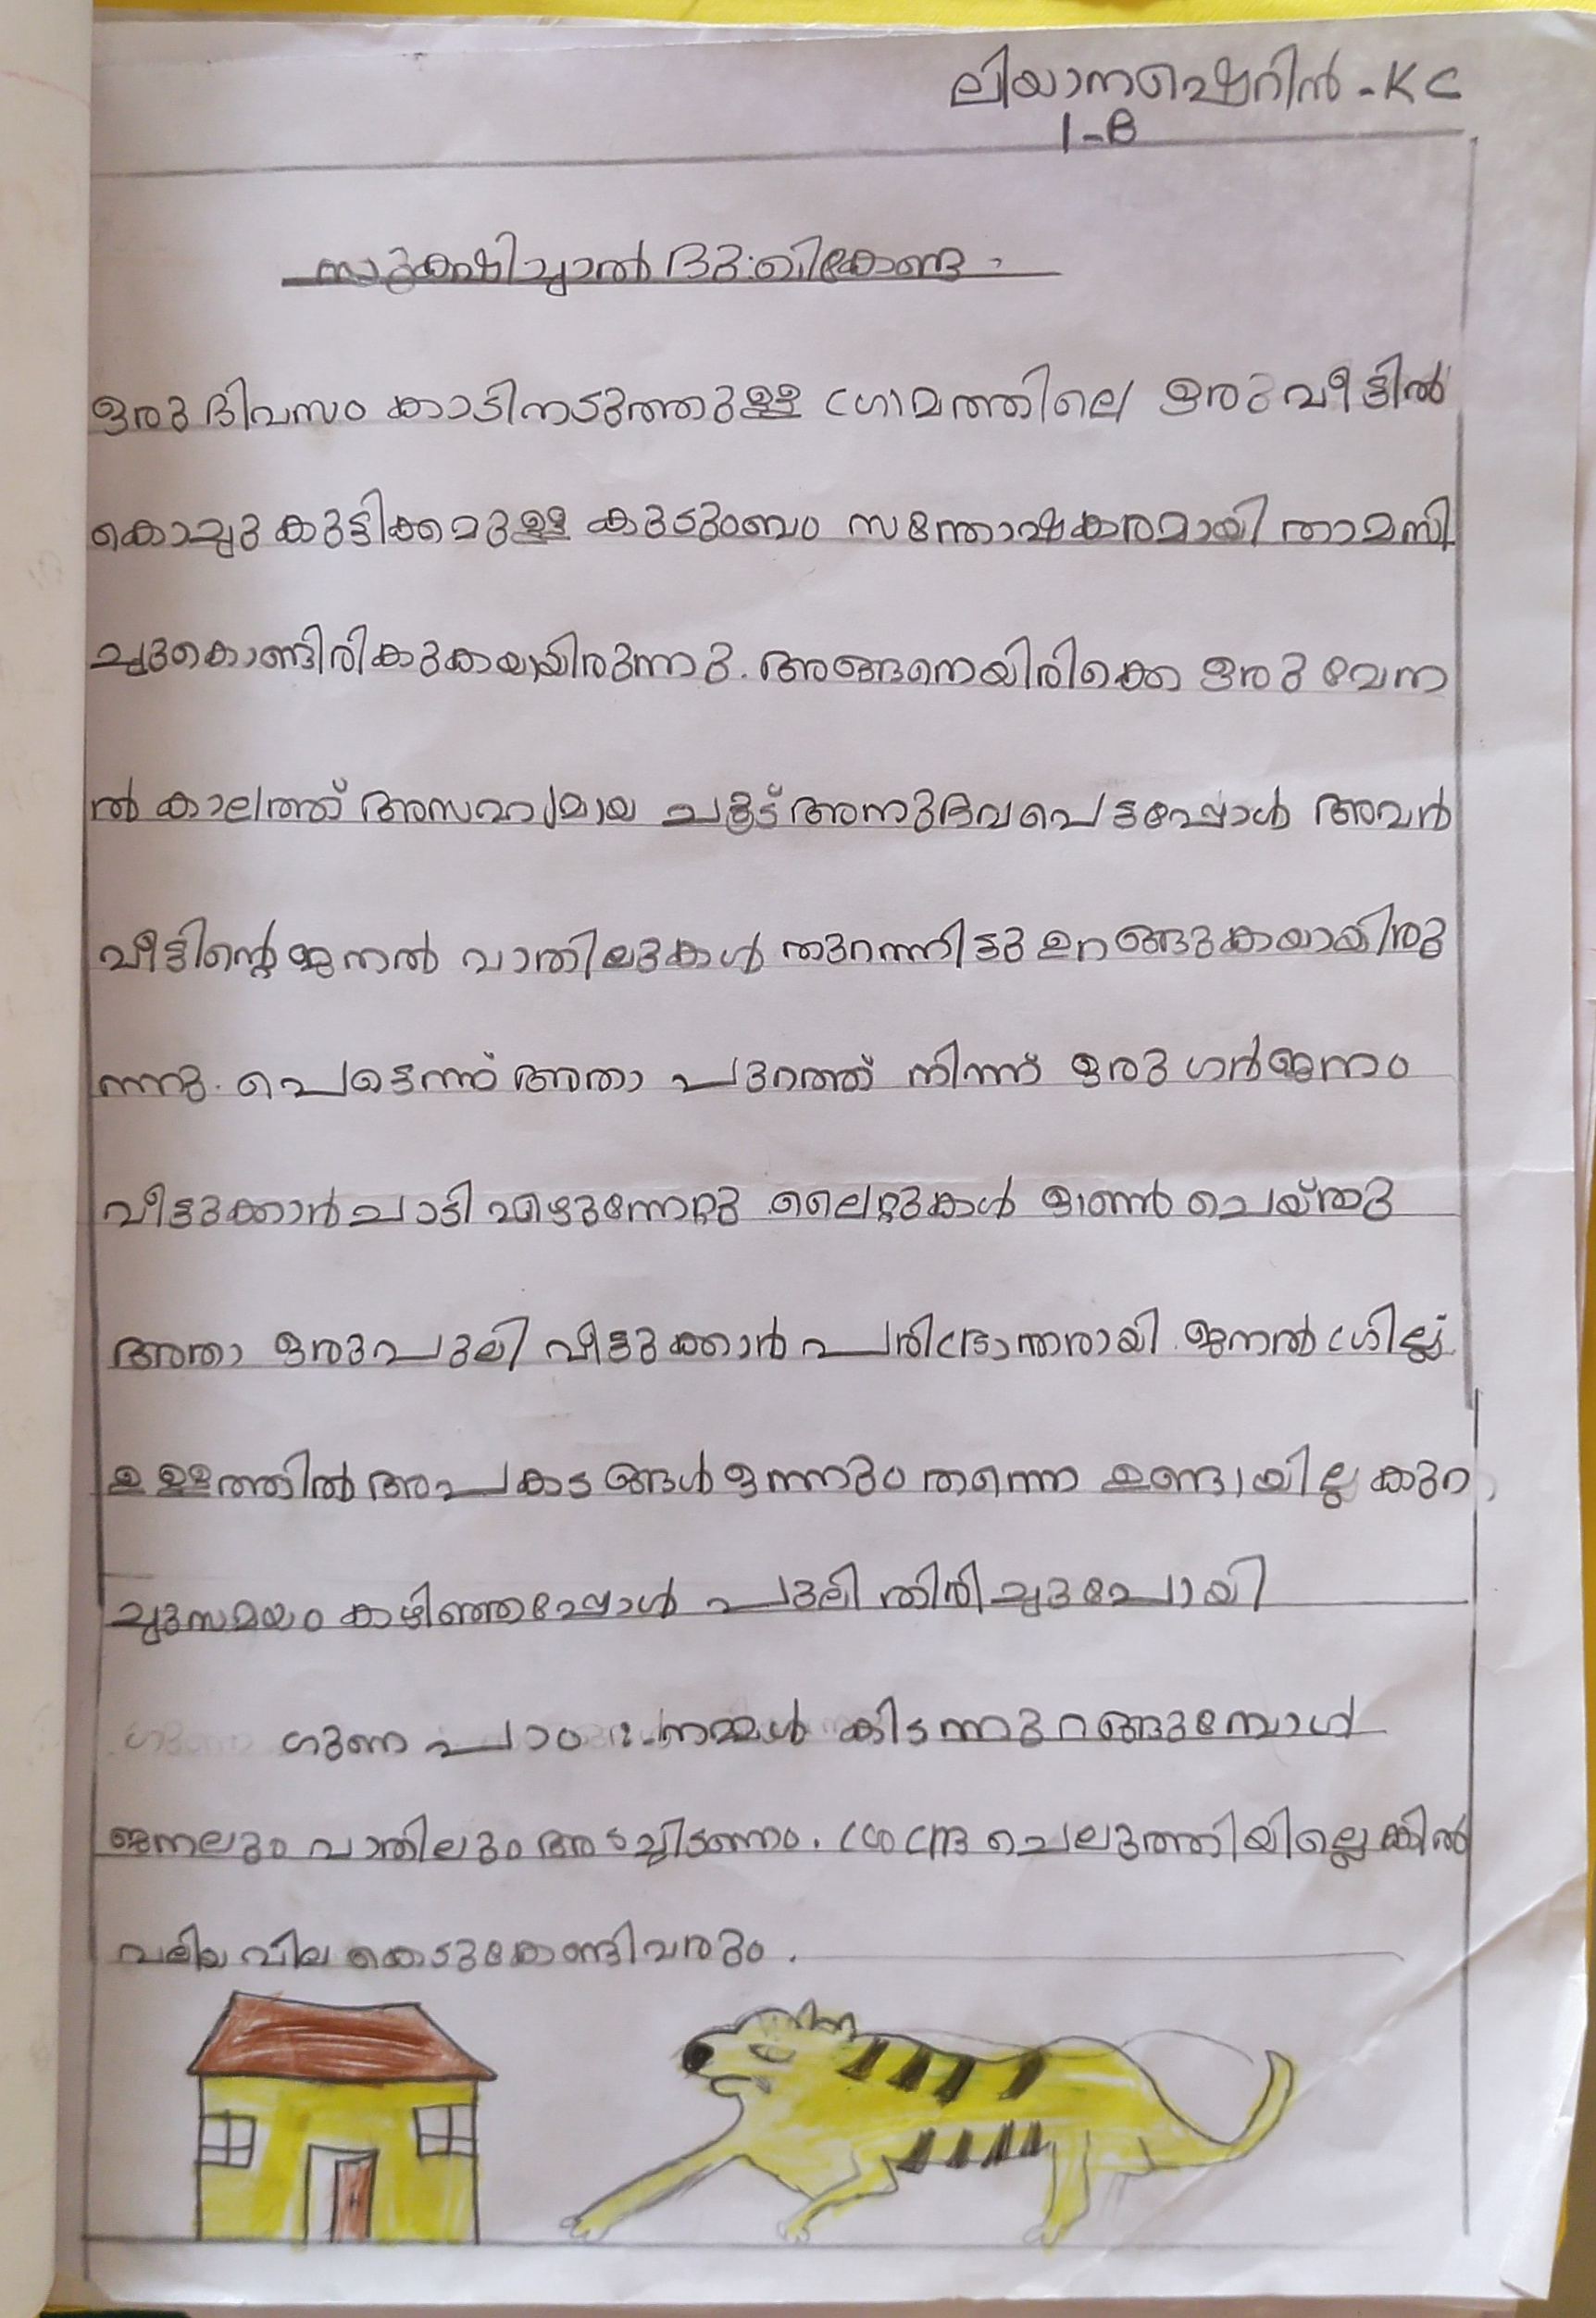 ലിയാനഷെറിൻ - KC
1-B
സുക്ഷിച്ചാൽ ദു:ഖിക്കേണ്ട.
ഒരു ദിവസം കാടിനടുത്തുള്ള ഗ്രാമത്തിലെ ഒരു വീട്ടിൽ
കൊച്ചു കുട്ടിക്കമുള്ള കുടുംബം സന്തോഷകരമായി താമസി
ച്ചുകൊണ്ടിരികുകയായിരുന്നു. അങ്ങനെയിരിക്കെ ഒരു വേന
ൽ കാലത്ത് അസഹ്യമായ ചൂട് അനുഭവപെട്ടപ്പോൾ അവൻ
വീട്ടിന്റെ ജനൽ വാതിലുകൾ തുറന്നിട്ടു ഉറങ്ങുകയായിരു
ന്നു. പെട്ടെന്ന് അതാ പുറത്ത് നിന്ന് ഒരു ഗർജനം
വീട്ടുക്കാർ ചാടി എഴുന്നേറ്റു ലൈറ്റുകൾ ഓൺ ചെയ്തു
അതാ ഒരു പുലി വീട്ടുക്കാർ പരിഭ്രാന്തരായി. ജനൽ ഗ്രില്ല്
ഉള്ളത്തിൽ അപകടങ്ങൾ ഒന്നും തന്നെ ഉണ്ടായില്ല കുറ
ച്ചുസമയം കഴിഞ്ഞപ്പോൾ പുലി തിരിച്ചുപോയി
ഗുണ പാഠം :- നമ്മൾ കിടന്നുറങ്ങുമ്പോൾ
ജനലും വാതിലും അടച്ചിടണം. ശ്രദ്ര ചെലുത്തിയില്ലെങ്കിൽ
വലിയ വില കൊടുക്കേണ്ടിവരും.